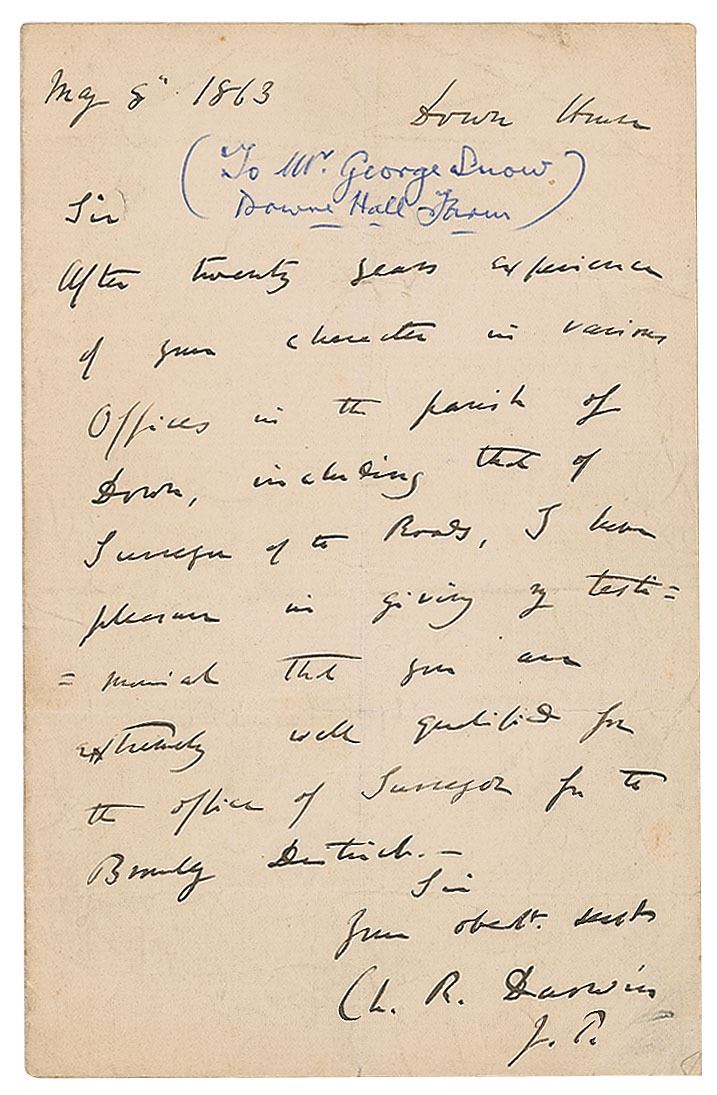 May 8th 1863 Down House
(To Mr. George Snow
Downe Hall Farm)
Sir
After twenty years experience
of your character in various
Offices in the parish of
Down, including that of
Surveyor of the Roads, I have
pleasure in giving my testi=
=monial that you are
extremely well qualified for
the office of Surveyor for the
Bromley District.—
Sir
Your obedt. servt
Ch. R. Darwin
J. P.